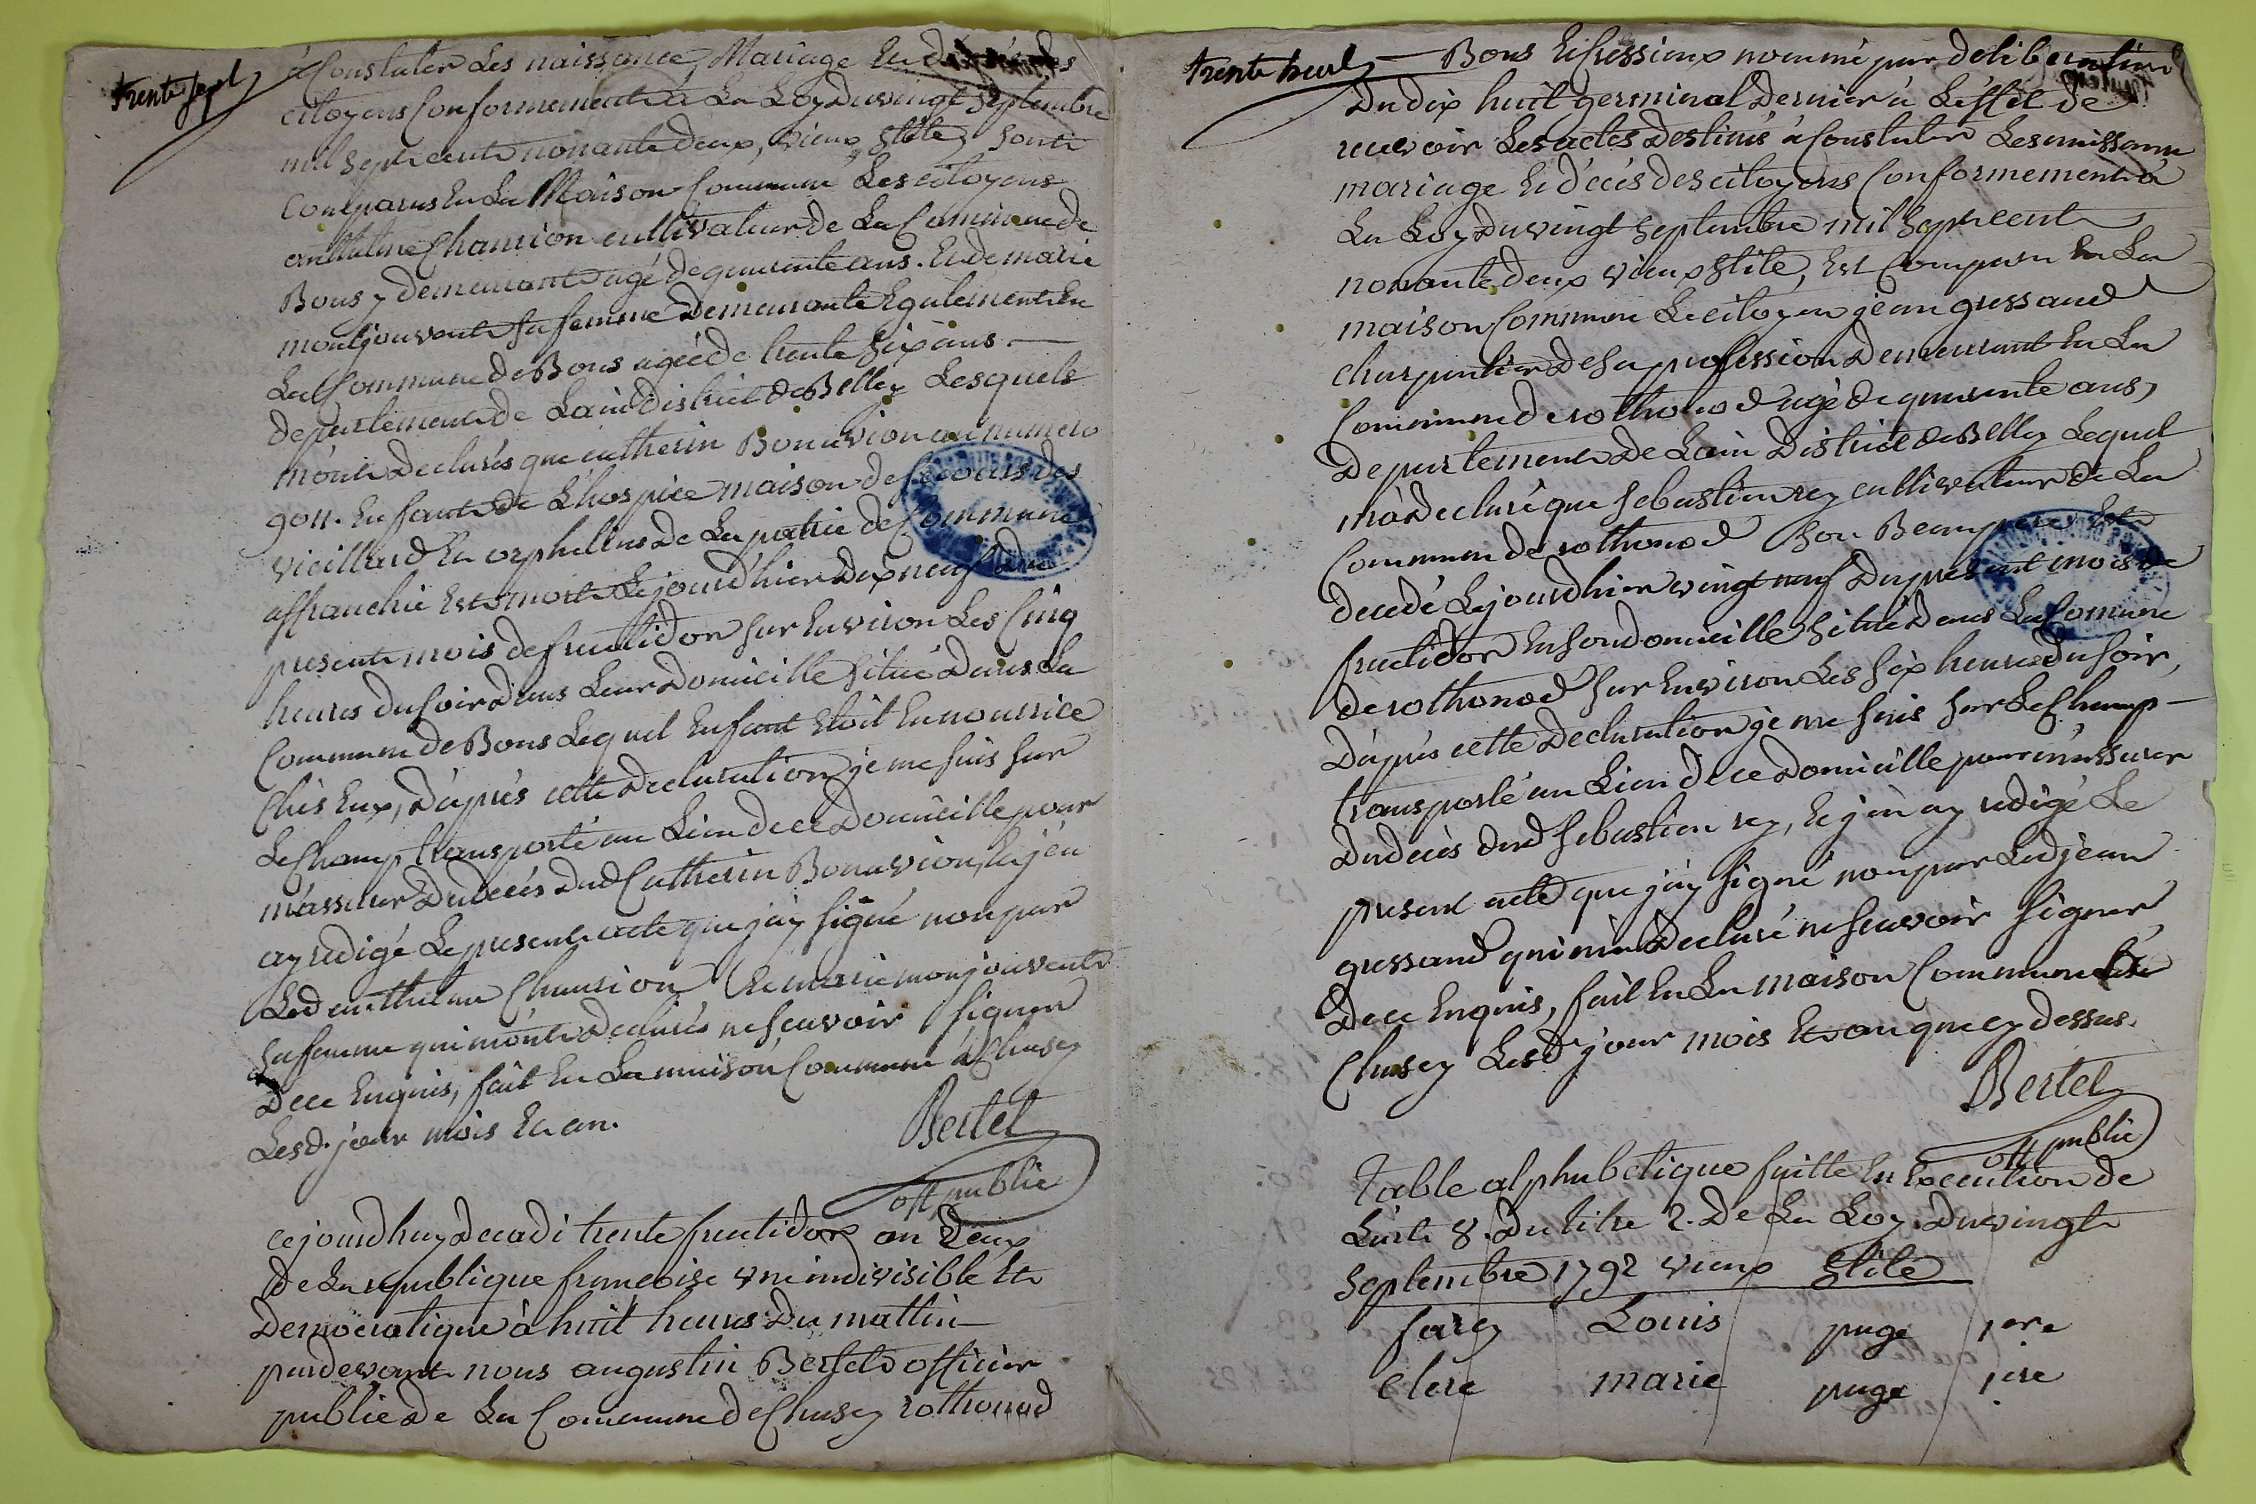 trente sept
à Constater Les naissance, Mariage Et décès des
citoyens Conformement à La Loy du vingt Septembre
mil Sept cent nonante deux, vieux stile, sont
Comparus En La Maison Commune Les citoyens
anthelme Chanrion cultivateur de La Commune de
Bons y demeurant agé de quarante ans. Et de marie
montjouvent sa femme Demeurante Egalement En
La Commune de Bons agée de trente six ans —
departement de Lain district de Belley Lesquels
m'ont Declarés que cutherin Bonavion au numero
9011. Enfant de L'hospice maison de secours des
vieillard Et orphelins De La patrie de Commune
affranchie Est mort Le jourd'hier Dix neuf du
present mois de fructidor sur Environ Les Cinq
heures du soir dans Leur Domicille situé Dans La
Commune de Bons Lequel Enfant Etoit En nourrice
Chés Eux, D'après cette Declaration je me suis sur
Le Champ transporté au Lieu de ce Domicille pour
m'assurer Du decés Dud Cutherin Bonavion, Et j'en
ay redigé Le present acte que j'ay signé non par
Led anthelme Chanrion Et marie monjouvent
sa femme qui m'ont Declarés ne scavoir signer
De ce Enquis, fait En La maison Commune à Chasey
Lesd. jour mois Et an.
Bertet
off public
ce jourd'huy Decadi trente fructidor an Deux
De La republique françoise une indivisible Et
Democratique à huit heures Du mattin
pardevant nous augustin Bertet officier
public De La Commune de Chasey rothonod
trente huit
— Bons Et Cressieux nommé par deliberation
Du dix huit germinal Dernier à L'effet de
recevoir Les actes Destinés à Constater Les naissance
mariage Et décès des citoyens Conformement à
La Loy du vingt Septembre mil Sept cent
nonante deux vieux Stile, Est Comparu En La
maison Commune Le citoyen jean gressaud
charpentier De sa profession Demeurant En La
Commune de rothonod agé de quarante ans,
Departement De Lain District de Belley Lequel
m'a Declaré que sebastien rey cultivateur de La
Commune de rothonod son Beaupere Est
decedé Le jourdhier vingt neuf Du present mois de
fructidor En son domicille situé Dans La Comune
de rothonod sur Environ Les six heures du soir,
D'après cette Declaration je me suis sur Le Champ —
transporté au Lieu de ce Domicille pour m'assurer
Du decés dud sebastien rey, Et j'en ay redigé Le
present acte que j'ay signé non par Led jean
gressaud qui m'a Declaré ne scavoir signer
De ce Enquis, fait En La maison Commune de
Chasey Lesd jour mois Et an que cy dessus.
Bertet
off public
Table alphabetique faitte En Execution de
L'art. 8. Du titre 2. De La Loy Du vingt
Septembre 1792 vieux Stile
farcy Louis page 1ere
Clerc marie page 1ere